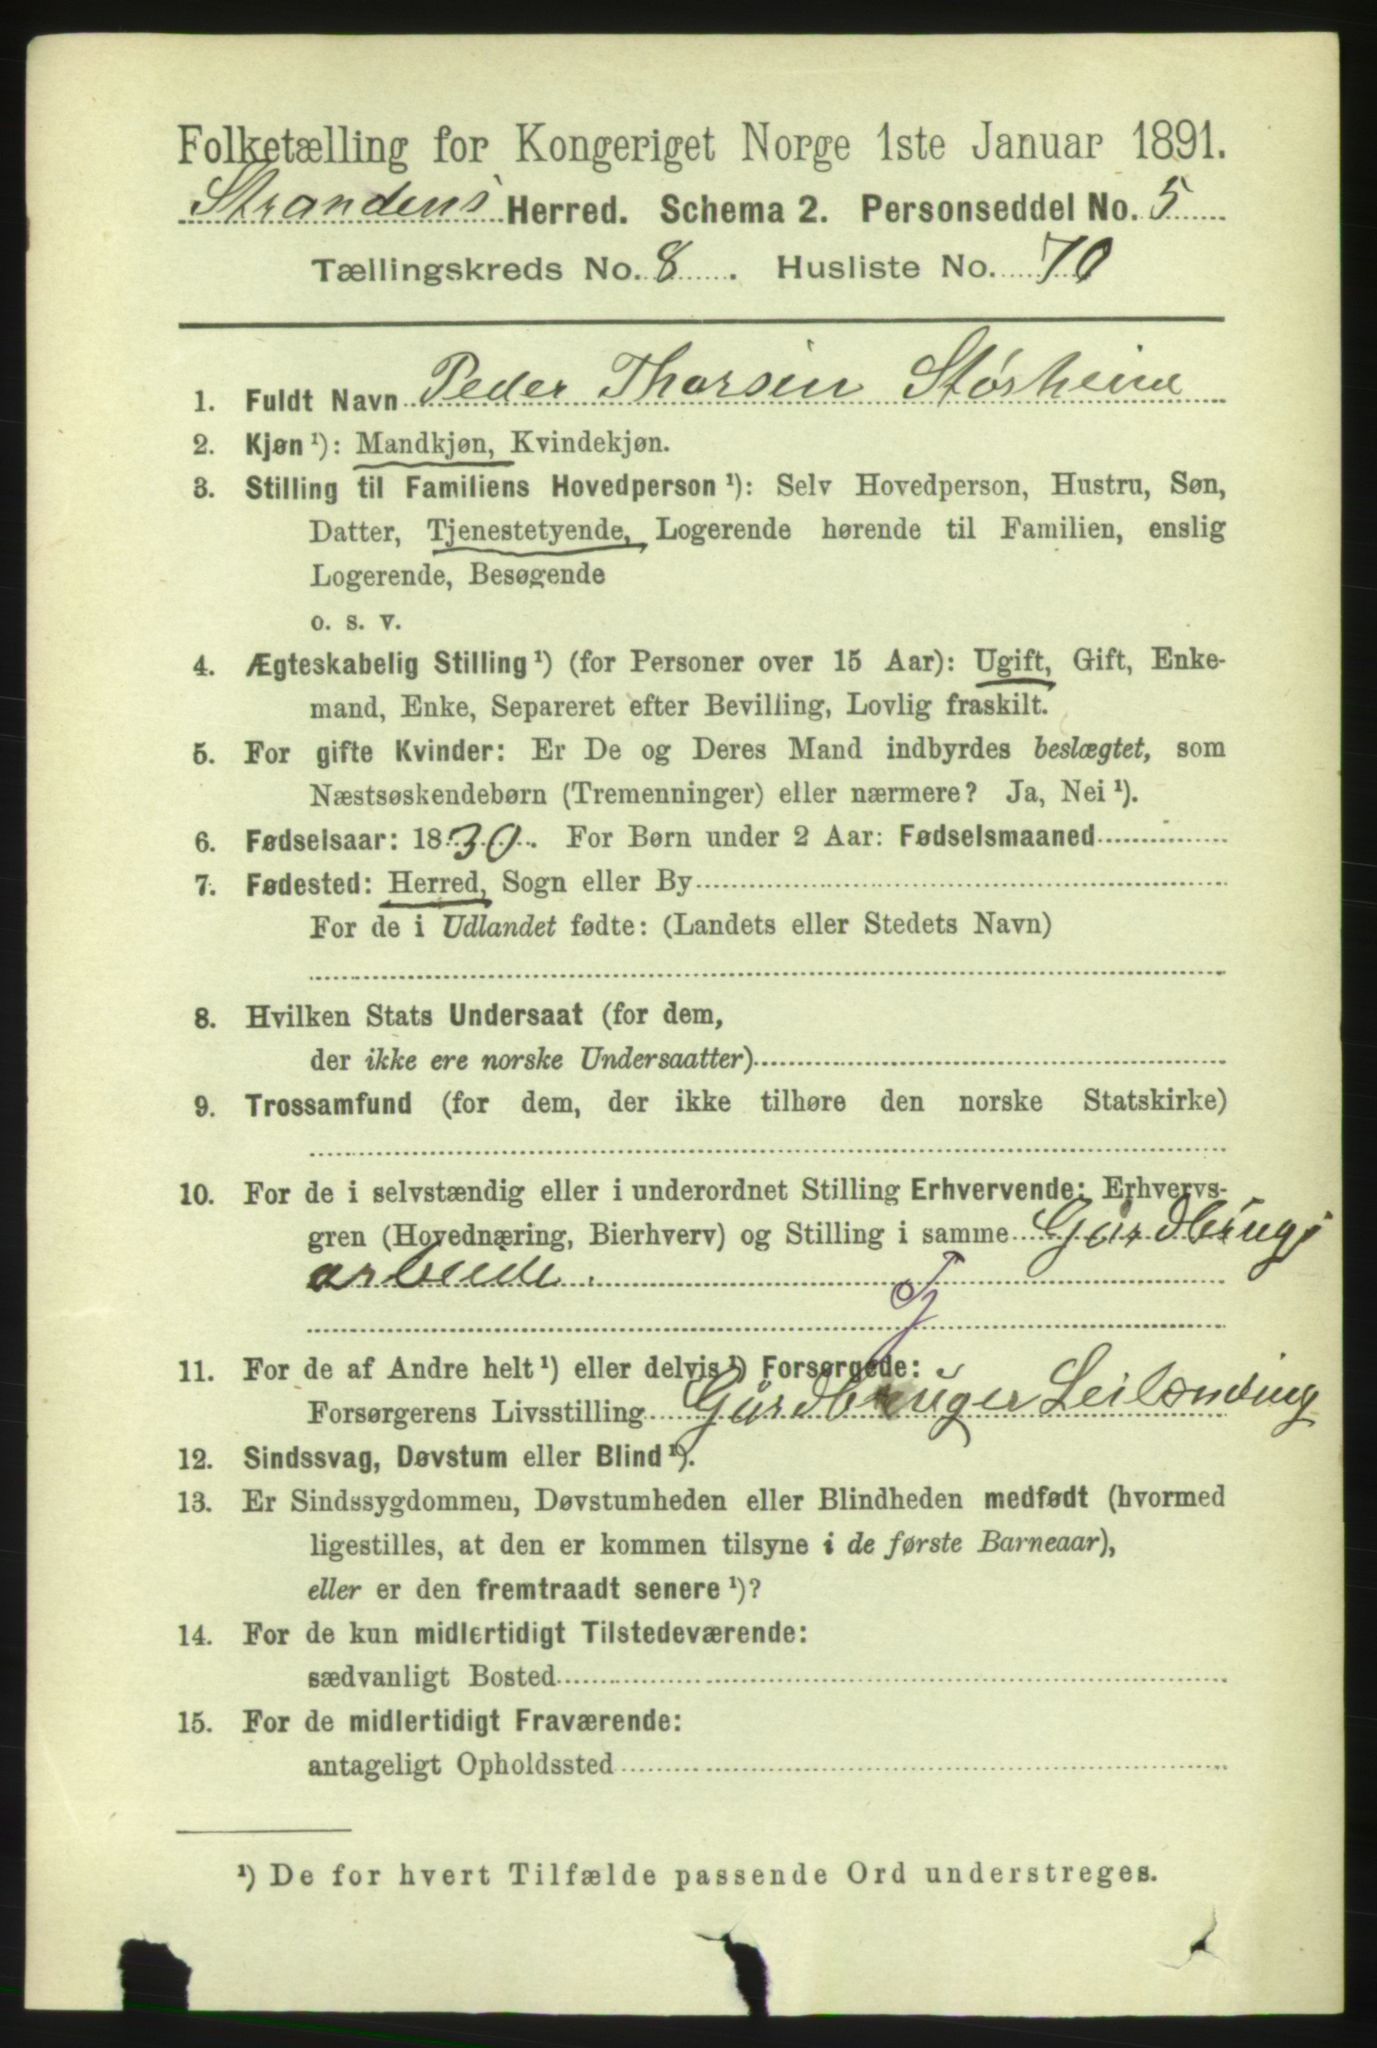 Folketælling for Kongeriget Norge 1ste Januar 1891.
Strandens Herred. Schema 2. Personseddel No. 5
Tællingskreds No. 8. Husliste No. 70
1. Fuldt Navn Peder Thorsen Störheim
2. Kjøn ¹): Mandkjøn, Kvindekjøn.
3. Stilling til Familiens Hovedperson ¹): Selv Hovedperson, Hustru, Søn,
Datter, Tjenestetyende, Logerende hørende til Familien, enslig
Logerende, Besøgende
o. s. v.
4. Ægteskabelig Stilling ¹) (for Personer over 15 Aar): Ugift, Gift, Enke-
mand, Enke, Separeret efter Bevilling, Lovlig fraskilt.
5. For gifte Kvinder: Er De og Deres Mand indbyrdes beslægtet, som
Næstsøskendebørn (Tremenninger) eller nærmere? Ja, Nei ¹).
6. Fødselsaar: 1830. For Børn under 2 Aar: Fødselsmaaned
7. Fødested: Herred, Sogn eller By
For de i Udlandet fødte: (Landets eller Stedets Navn)
8. Hvilken Stats Undersaat (for dem,
der ikke ere norske Undersaatter)
9. Trossamfund (for dem, der ikke tilhøre den norske Statskirke)
10. For de i selvstændig eller i underordnet Stilling Erhvervende: Erhvervs-
gren (Hovednæring, Bierhverv) og Stilling i samme Gårdbrugs
arbeide.
11. For de af Andre helt ¹) eller delvis ¹) Forsørgede:
Forsørgerens Livsstilling Gårdbruger Leilænding
12. Sindssvag, Døvstum eller Blind ¹).
13. Er Sindssygdommen, Døvstumheden eller Blindheden medfødt (hvormed
ligestilles, at den er kommen tilsyne i de første Barneaar),
eller er den fremtraadt senere ¹)?
14. For de kun midlertidigt Tilstedeværende:
sædvanligt Bosted
15. For de midlertidigt Fraværende:
antageligt Opholdssted
¹) De for hvert Tilfælde passende Ord understreges.